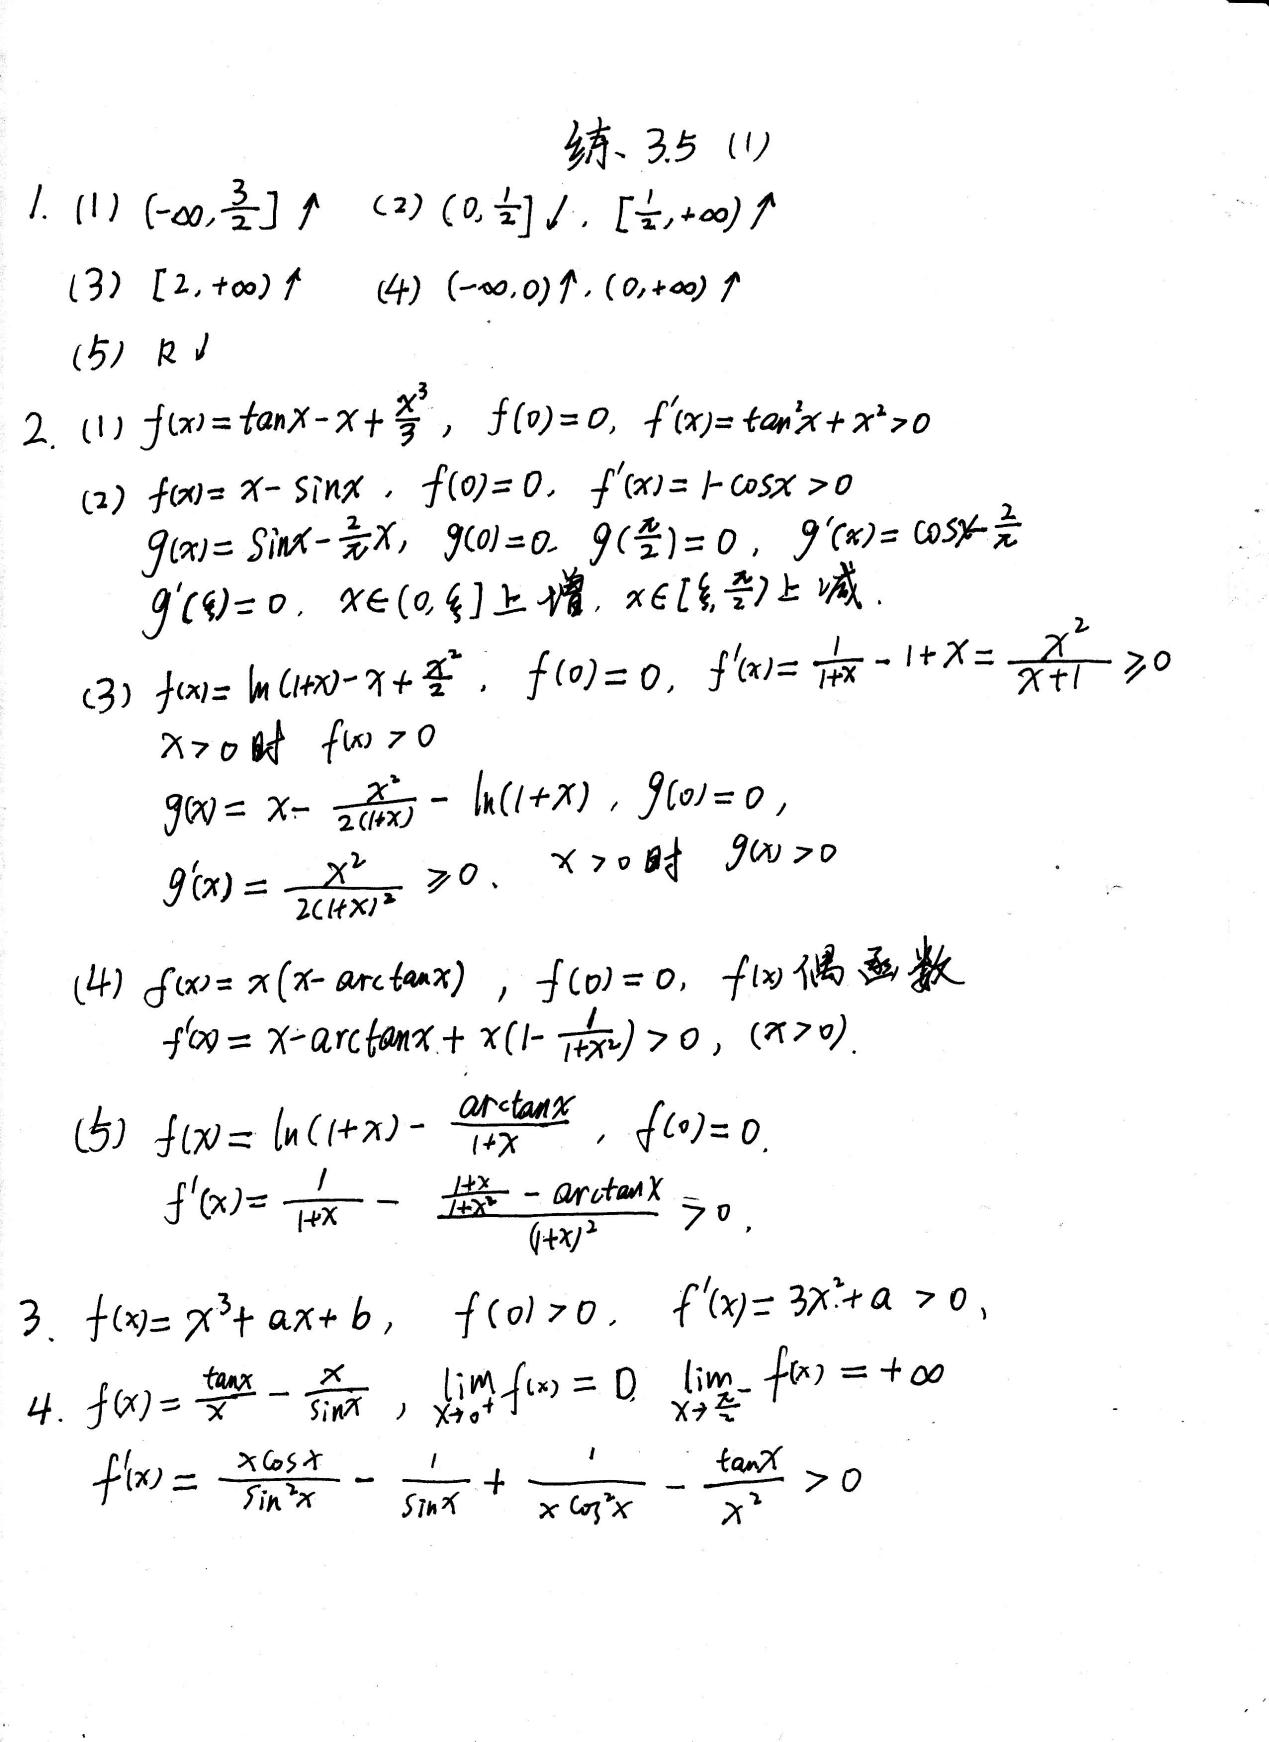 练 3.5 (1)
1. (1) (-∞, 3/2] ↑ (2) (0, 1/2] ↓, [1/2, +∞) ↑
(3) [2, +∞) ↑ (4) (-∞, 0) ↑, (0, +∞) ↑
(5) R ↓
2. (1) f(x) = tanx - x + x³/3, f(0) = 0, f'(x) = tan²x + x² > 0
(2) f(x) = x - sinx, f(0) = 0, f'(x) = 1-cosx > 0
g(x) = sinx - 2/π x, g(0) = 0, g(π/2) = 0, g'(x) = cosx - 2/π
g'(ξ) = 0, x∈(0, ξ] 上增, x∈[ξ, π/2) 上减.
(3) f(x) = ln(1+x) - x + x²/2, f(0) = 0, f'(x) = 1/(1+x) - 1 + x = x²/(x+1) ≥ 0
x > 0 时 f(x) > 0
g(x) = x - x²/(2(1+x)) - ln(1+x), g(0) = 0,
g'(x) = x²/(2(1+x)²) ≥ 0, x > 0 时 g(x) > 0
(4) f(x) = x(x - arctanx), f(0) = 0, f(x) 偶函数
f'(x) = x - arctanx + x(1 - 1/(1+x²)) > 0, (x > 0).
(5) f(x) = ln(1+x) - arctanx/(1+x), f(0) = 0.
f'(x) = 1/(1+x) - ((1+x)/(1+x²) - arctanx)/(1+x)² > 0,
3. f(x) = x³ + ax + b, f(0) > 0, f'(x) = 3x² + a > 0,
4. f(x) = tanx/x - x/sinx, lim x→0⁺ f(x) = 0, lim x→π/2⁻ f(x) = +∞
f'(x) = xcosx/sin²x - 1/sinx + 1/(xcos²x) - tanx/x² > 0